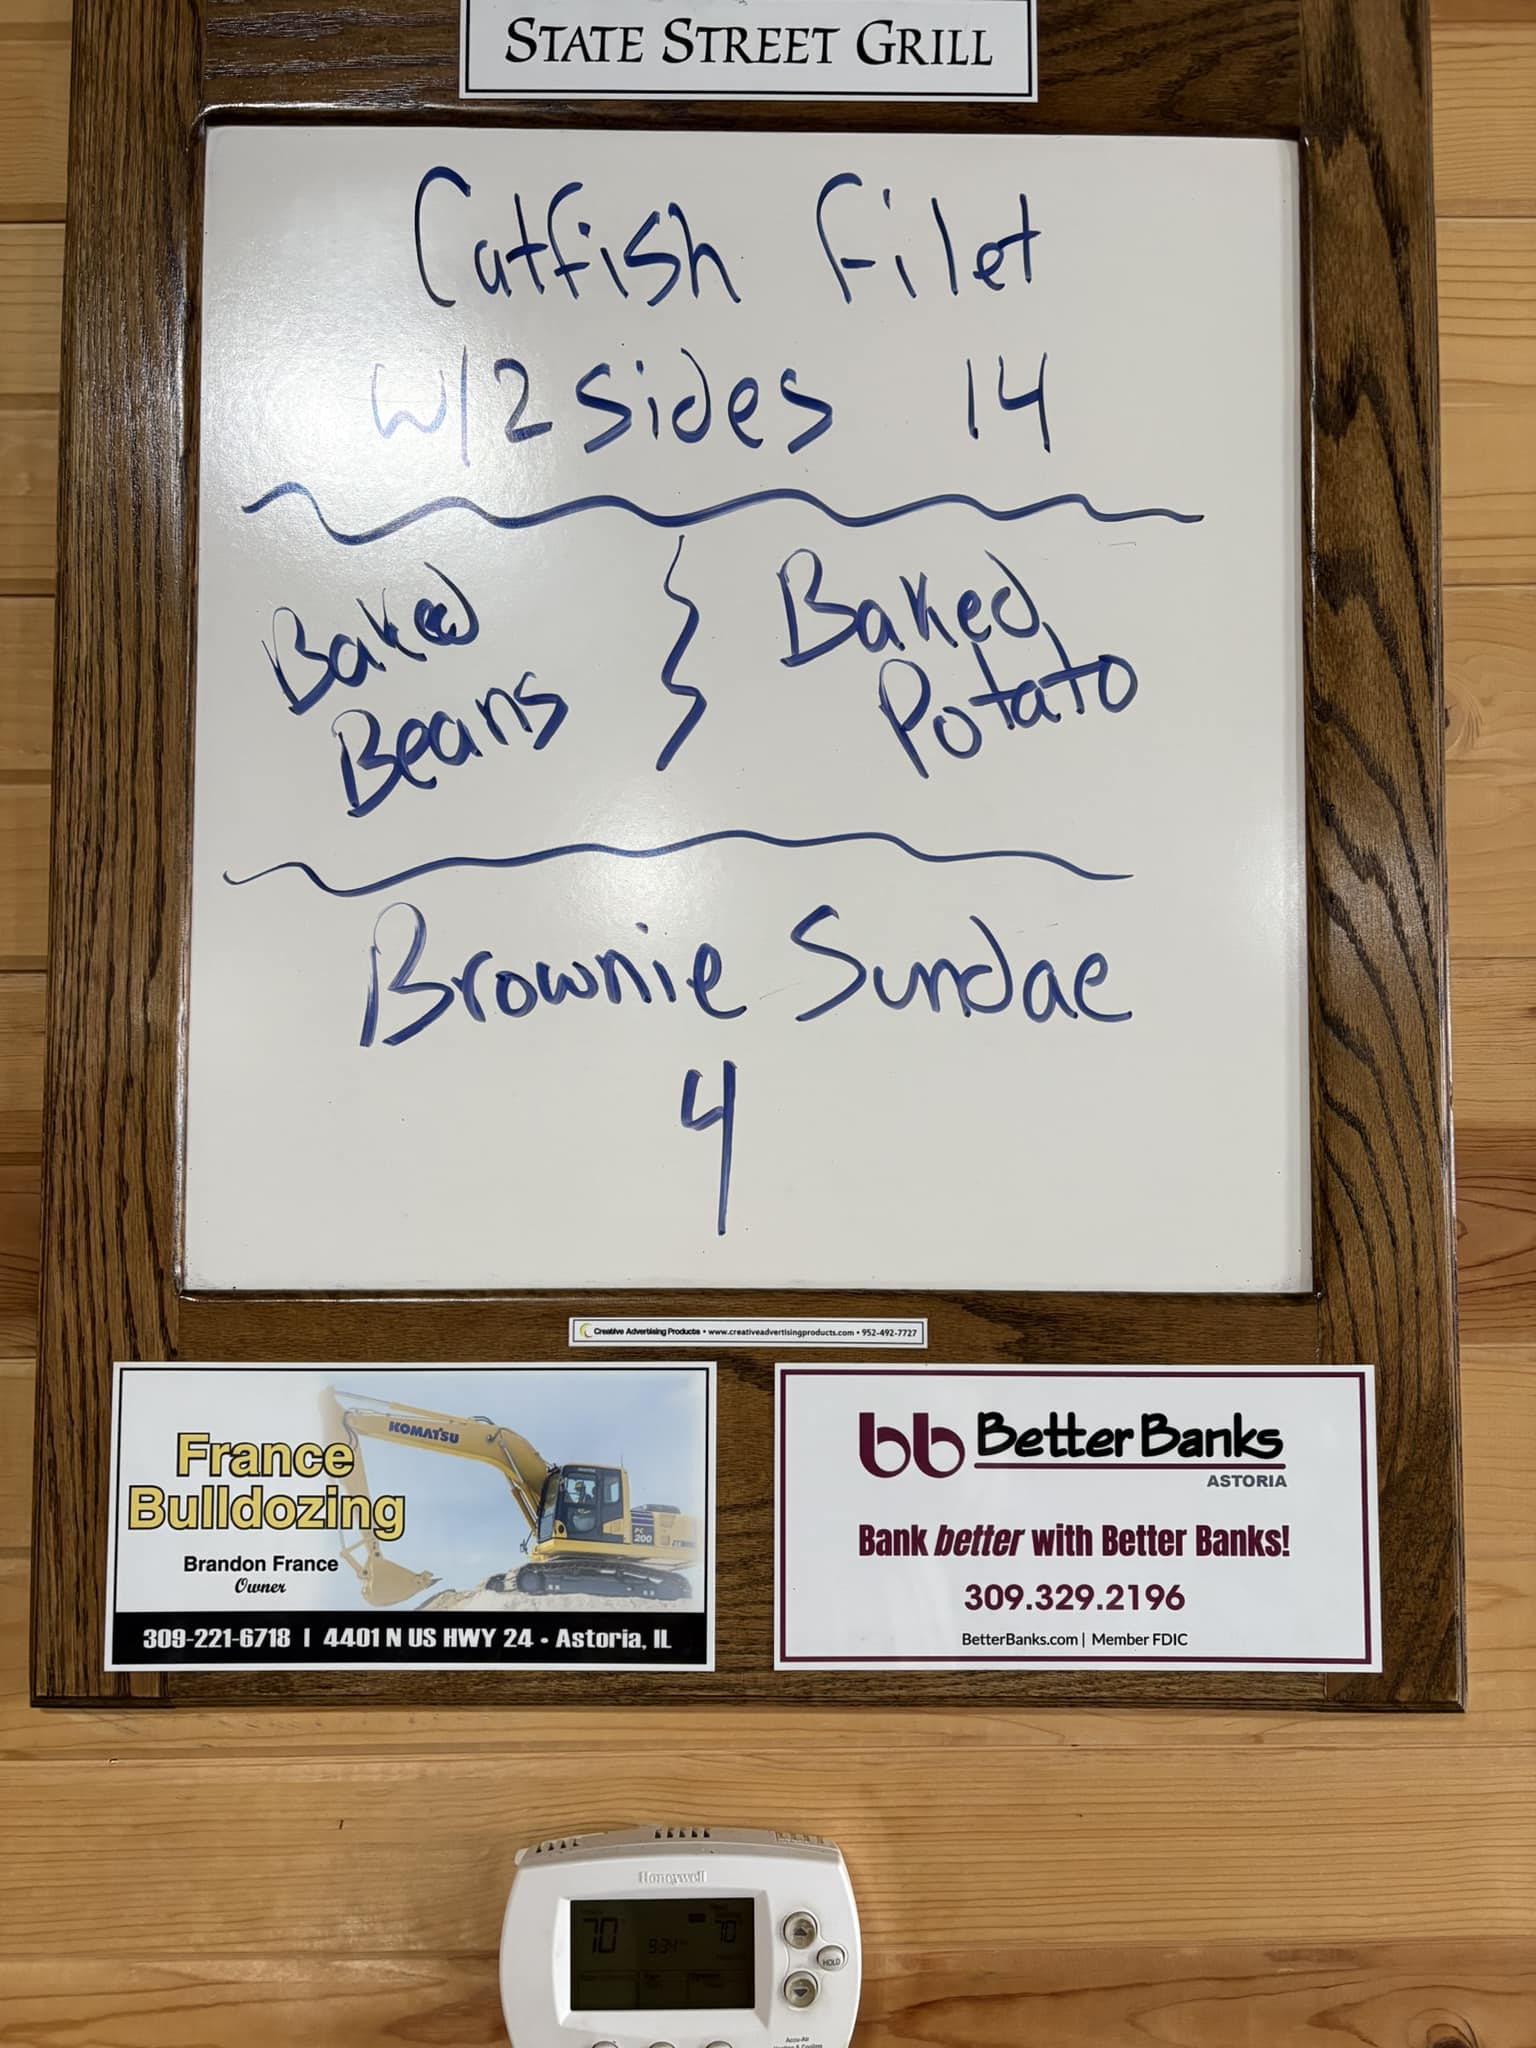 STATE STREET GRILL
Catfish Filet
w/2 sides 14
Baked
Beans
Baked
Potato
Brownie Sundae
4
Creative Advertising Products • www.creativeadvertisingproducts.com • 952-492-7727
KOMATSU
France
Bulldozing
PC
200
Brandon France
Owner
309-221-6718 | 4401 N US HWY 24 • Astoria, IL
bb Better Banks
ASTORIA
Bank better with Better Banks!
309.329.2196
BetterBanks.com | Member FDIC
Honeywell
70 9:34 70
HOLD